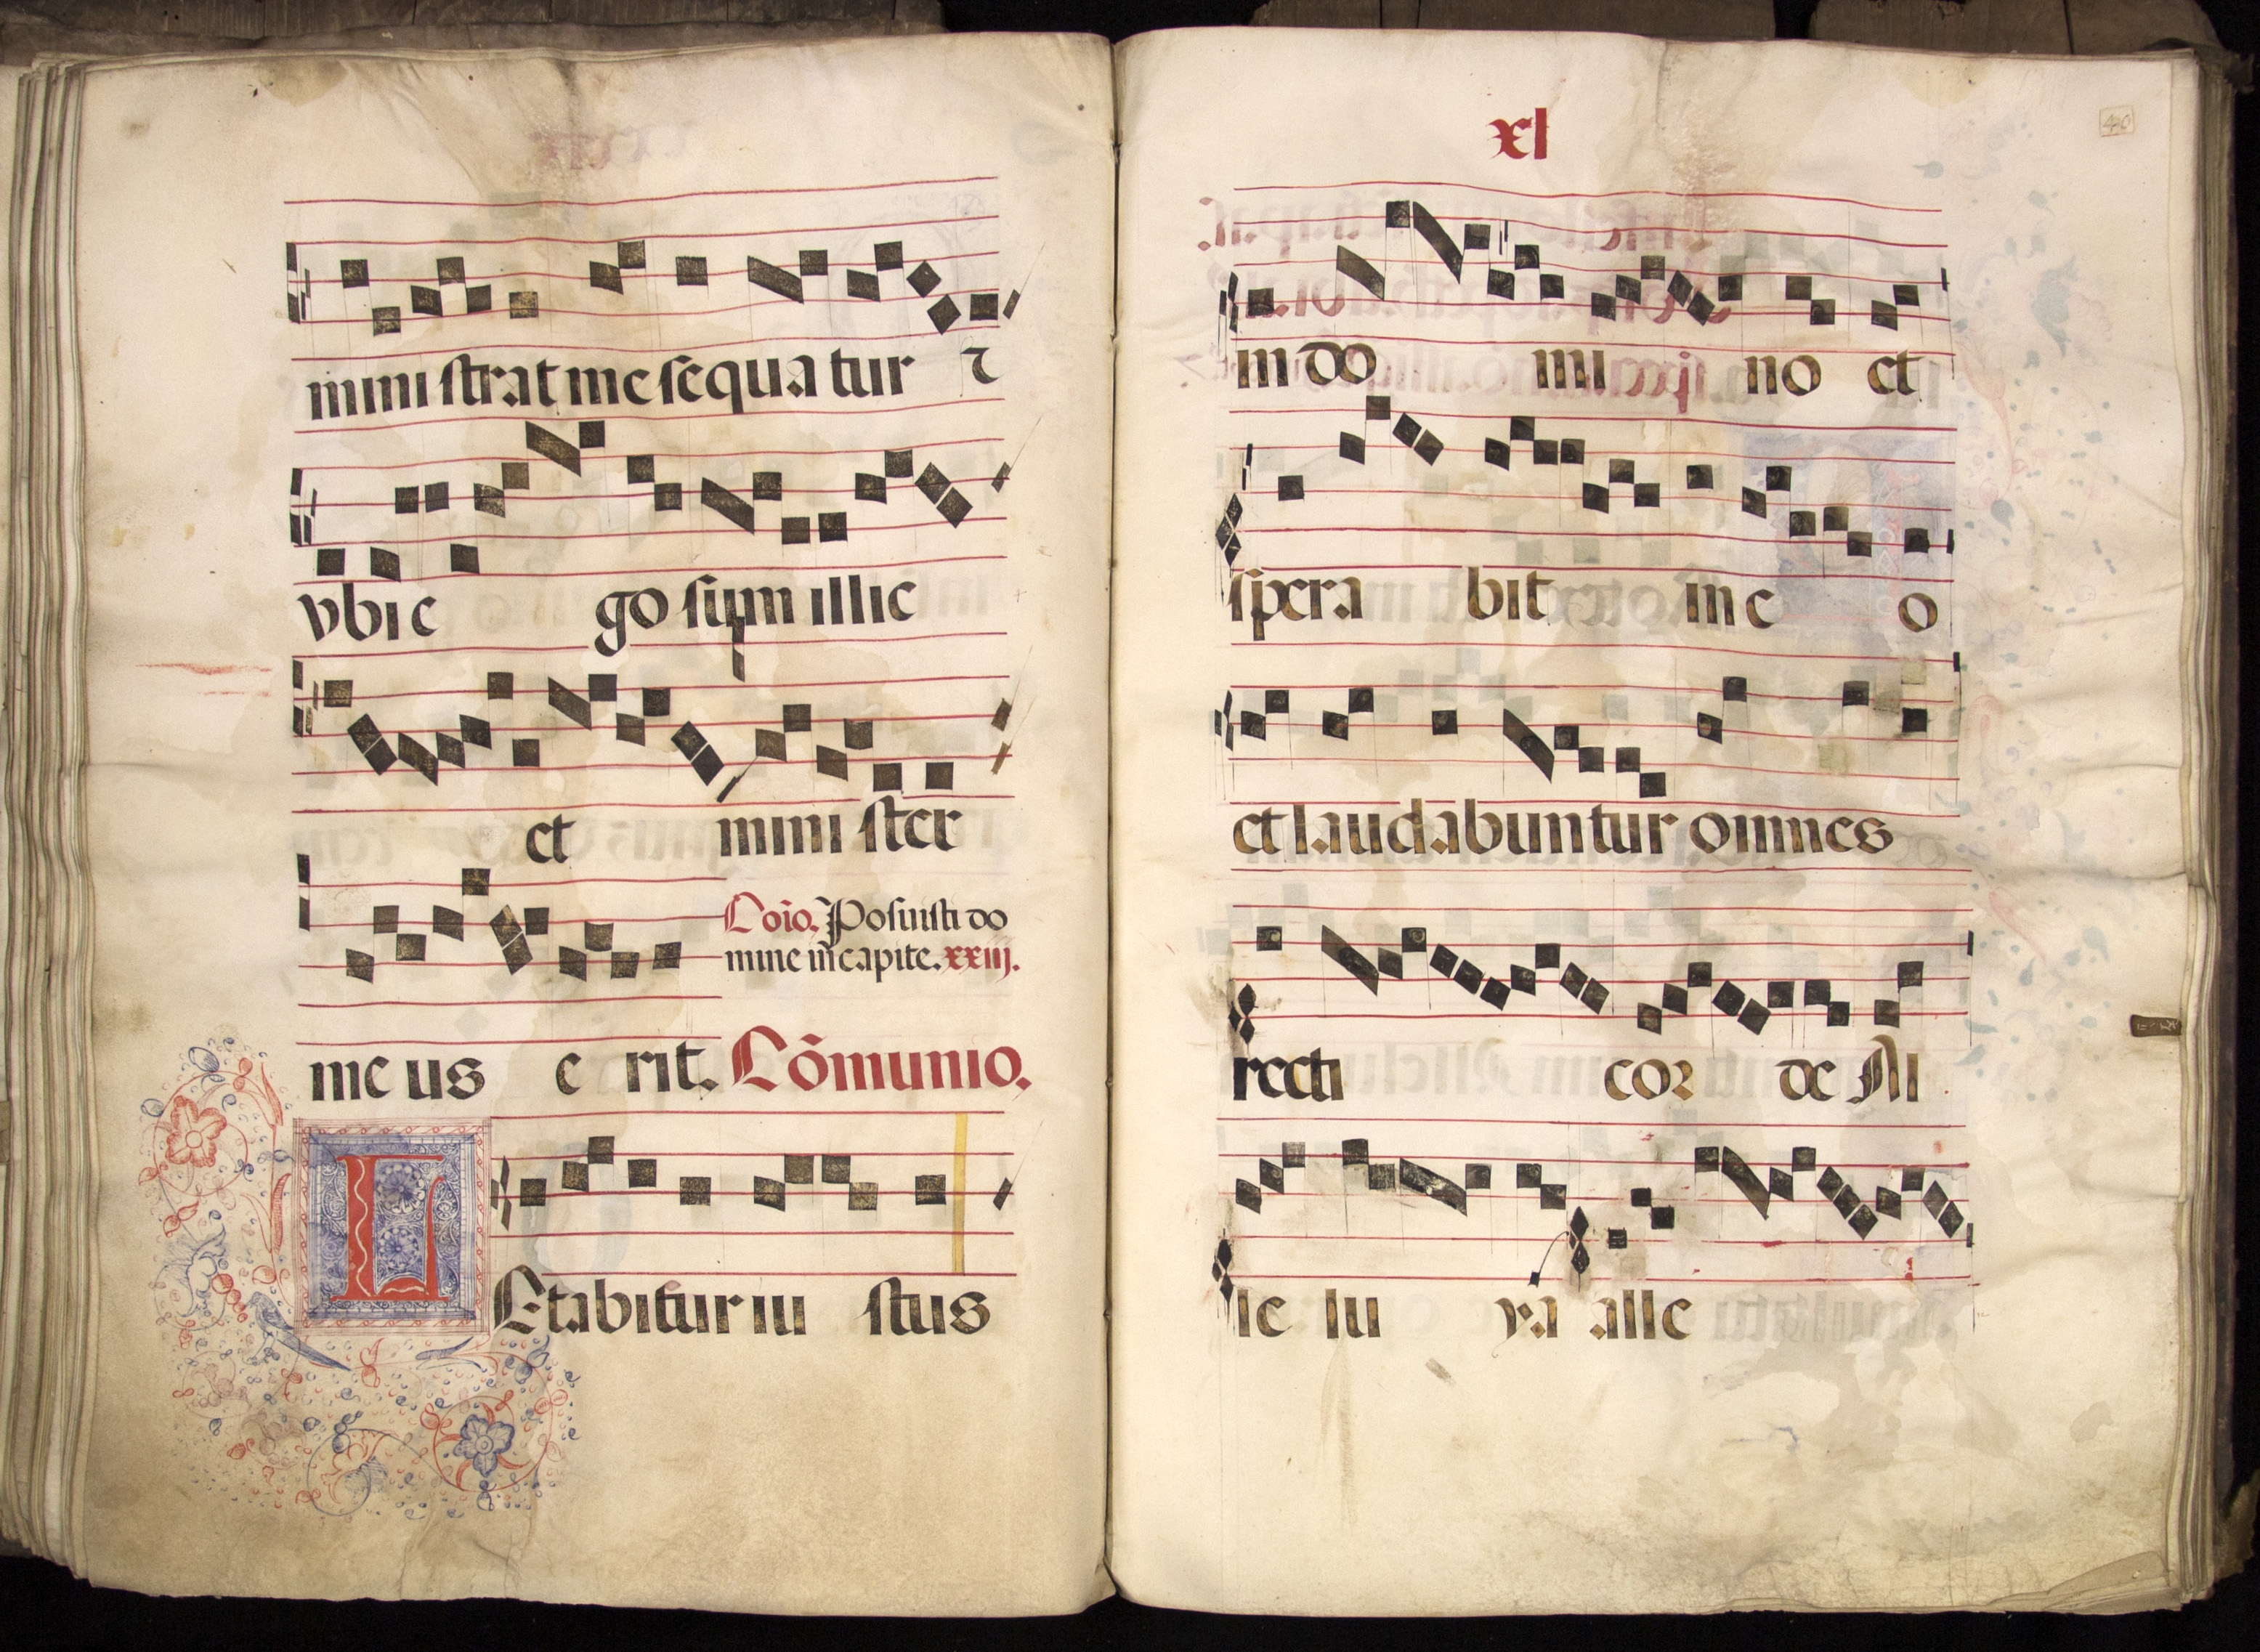 mini strat me sequa tur ⁊
vbi e go sum illic
et mini ster
Coīo. Posuisti do
mine in capite. xxiij.
me us e rit. Cōmunio.
LEtabitur iu stus
xl
40
in do mi no et
spera bit in e o
et laudabuntur omnes
recti cor de Al
le lu ya alle